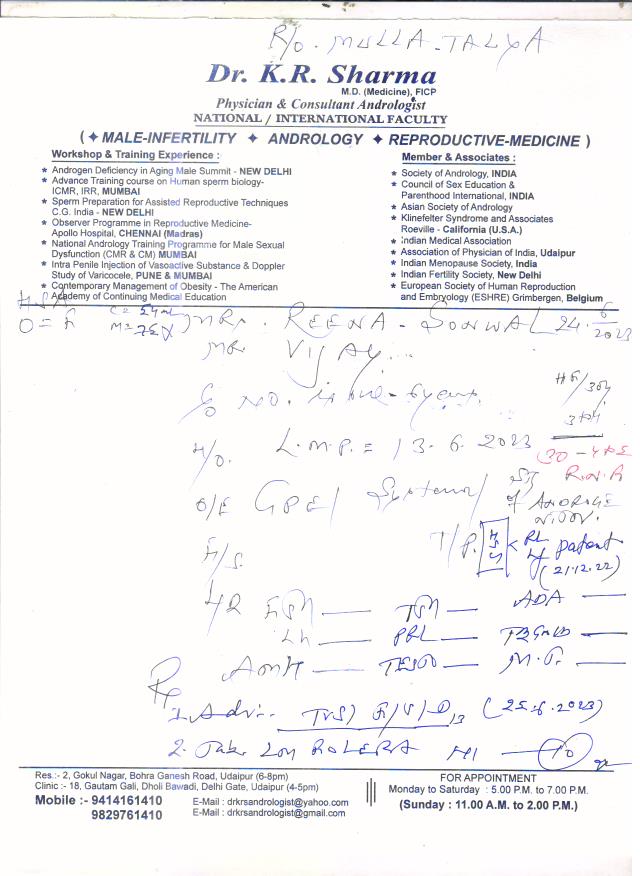 R/o. MULLA-TALYA
Dr. K.R. Sharma
M.D. (Medicine), FICP
Physician & Consultant Andrologist
NATIONAL / INTERNATIONAL FACULTY
( ✦ MALE-INFERTILITY ✦ ANDROLOGY ✦ REPRODUCTIVE-MEDICINE )
Workshop & Training Experience :
* Androgen Deficiency in Aging Male Summit - NEW DELHI
* Advance Training course on Human sperm biology-
ICMR, IRR, MUMBAI
* Sperm Preparation for Assisted Reproductive Techniques
C.G. India - NEW DELHI
* Observer Programme in Reproductive Medicine-
Apollo Hospital, CHENNAI (Madras)
* National Andrology Training Programme for Male Sexual
Dysfunction (CMR & CM) MUMBAI
* Intra Penile Injection of Vasoactive Substance & Doppler
Study of Varicocele, PUNE & MUMBAI
* Contemporary Management of Obesity - The American
Academy of Continuing Medical Education
Member & Associates :
* Society of Andrology, INDIA
* Council of Sex Education &
Parenthood International, INDIA
* Asian Society of Andrology
* Klinefelter Syndrome and Associates
Roeville - California (U.S.A.)
* Indian Medical Association
* Association of Physician of India, Udaipur
* Indian Menopause Society, India
* Indian Fertility Society, New Delhi
* European Society of Human Reproduction
and Embryology (ESHRE) Grimbergen, Belgium
MRS. REENA - SONWAL 24.6/2023
MR. VIJAY
C/o NO. issue - 6 years.
H/o. L.M.P. = 13.6.2023
O/E GPE/ Systemic/
T/P. HSG < RL patent
(21.12.22)
FSH — TSH — ADA —
LH — PRL — TB Gold —
AMH — TESTO — M.T. —
Rx
1. Adv:- TVS) F/S/D13 (25.6.2023)
2.
Res.:- 2, Gokul Nagar, Bohra Ganesh Road, Udaipur (6-8pm)
Clinic :- 18, Gautam Gali, Dholi Bawadi, Delhi Gate, Udaipur (4-5pm)
Mobile :- 9414161410 E-Mail : drkrsandrologist@yahoo.com
9829761410 E-Mail : drkrsandrologist@gmail.com
FOR APPOINTMENT
Monday to Saturday : 5.00 P.M. to 7.00 P.M.
(Sunday : 11.00 A.M. to 2.00 P.M.)